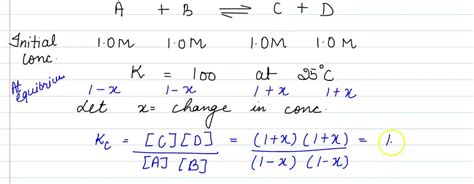 A + B ⇌ C + D
Initial conc. 1.0M 1.0M 1.0M 1.0M
K = 100 at 25°C
At equibrium 1-x 1-x 1+x 1+x
Let x = change in conc.
Kc = [C][D] / [A][B] = (1+x)(1+x) / (1-x)(1-x) = 1.